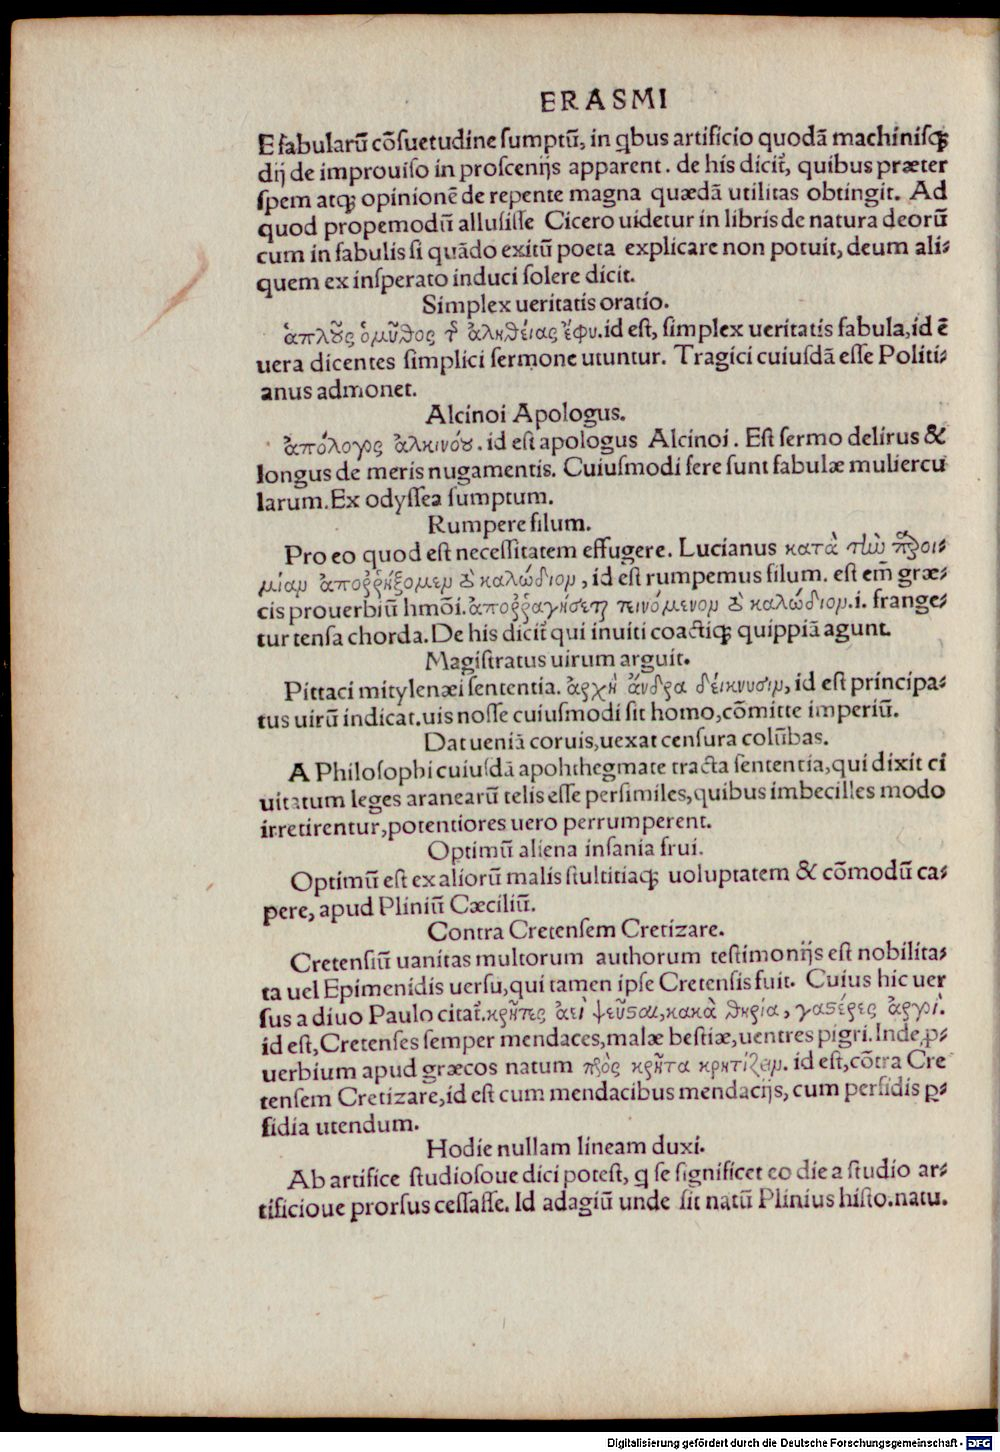 ERASMI
E fabularū cōsuetudine sumptū, in qbus artificio quodā machinisq;
dij de improuiso in proscenijs apparent. de his dicit̄, quibus præter
spem atq; opinionē de repente magna quædā utilitas obtingit. Ad
quod propemodū allusisse Cicero uidetur in libris de natura deorū
cum in fabulis si quādo exitū poeta explicare non potuit, deum ali-
quem ex insperato induci solere dicit.
Simplex ueritatis oratio.
ἁπλοῦς ὁ μῦθος τ͂ ἀληθείας ἔφυ. id est, simplex ueritatis fabula, id ē
uera dicentes simplici sermone utuntur. Tragici cuiusdā esse Politi-
anus admonet.
Alcinoi Apologus.
ἀπόλογος ἀλκινόου. id est apologus Alcinoi. Est sermo delirus &
longus de meris nugamentis. Cuiusmodi fere sunt fabulæ muliercu
larum. Ex odyssea sumptum.
Rumpere filum.
Pro eo quod est necessitatem effugere. Lucianus κατὰ τὴν παροι-
μίαν ἀποῤῥήξομεν τὸ καλώδιον, id est rumpemus filum. est em̄ græ-
cis prouerbiū hmōi. ἀποῤῥαγήσεται τεινόμενον τὸ καλώδιον. i. frange-
tur tensa chorda. De his dicit̄ qui inuiti coactiq; quippiā agunt.
Magistratus uirum arguit.
Pittaci mitylenæi sententia. ἀρχὴ ἄνδρα δείκνυσιν, id est principa-
tus uirū indicat. uis nosse cuiusmodi sit homo, cōmitte imperiū.
Dat ueniā coruis, uexat censura colūbas.
A Philosophi cuiusdā apohthegmate tracta sententia, qui dixit ci
uitatum leges aranearū telis esse persimiles, quibus imbecilles modo
irretirentur, potentiores uero perrumperent.
Optimū aliena insania frui.
Optimū est ex aliorū malis stultitiaq; uoluptatem & cōmodū ca-
pere, apud Pliniū Cæciliū.
Contra Cretensem Cretizare.
Cretensiū uanitas multorum authorum testimonijs est nobilita-
ta uel Epimenidis uersu, qui tamen ipse Cretensis fuit. Cuius hic uer
sus a diuo Paulo citat̄. κρῆτες ἀεὶ ψεῦσαι, κακὰ θηρία, γαστέρες ἀργοί.
id est, Cretenses semper mendaces, malæ bestiæ, uentres pigri. Inde p-
uerbium apud græcos natum πρὸς κρῆτα κρητίζειν. id est, cōtra Cre
tensem Cretizare, id est cum mendacibus mendacijs, cum perfidis p-
fidia utendum.
Hodie nullam lineam duxi.
Ab artifice studiosoue dici potest, q se significet eo die a studio ar-
tificioue prorsus cessasse. Id adagiū unde sit natū Plinius histo. natu.
Digitalisierung gefördert durch die Deutsche Forschungsgemeinschaft - DFG